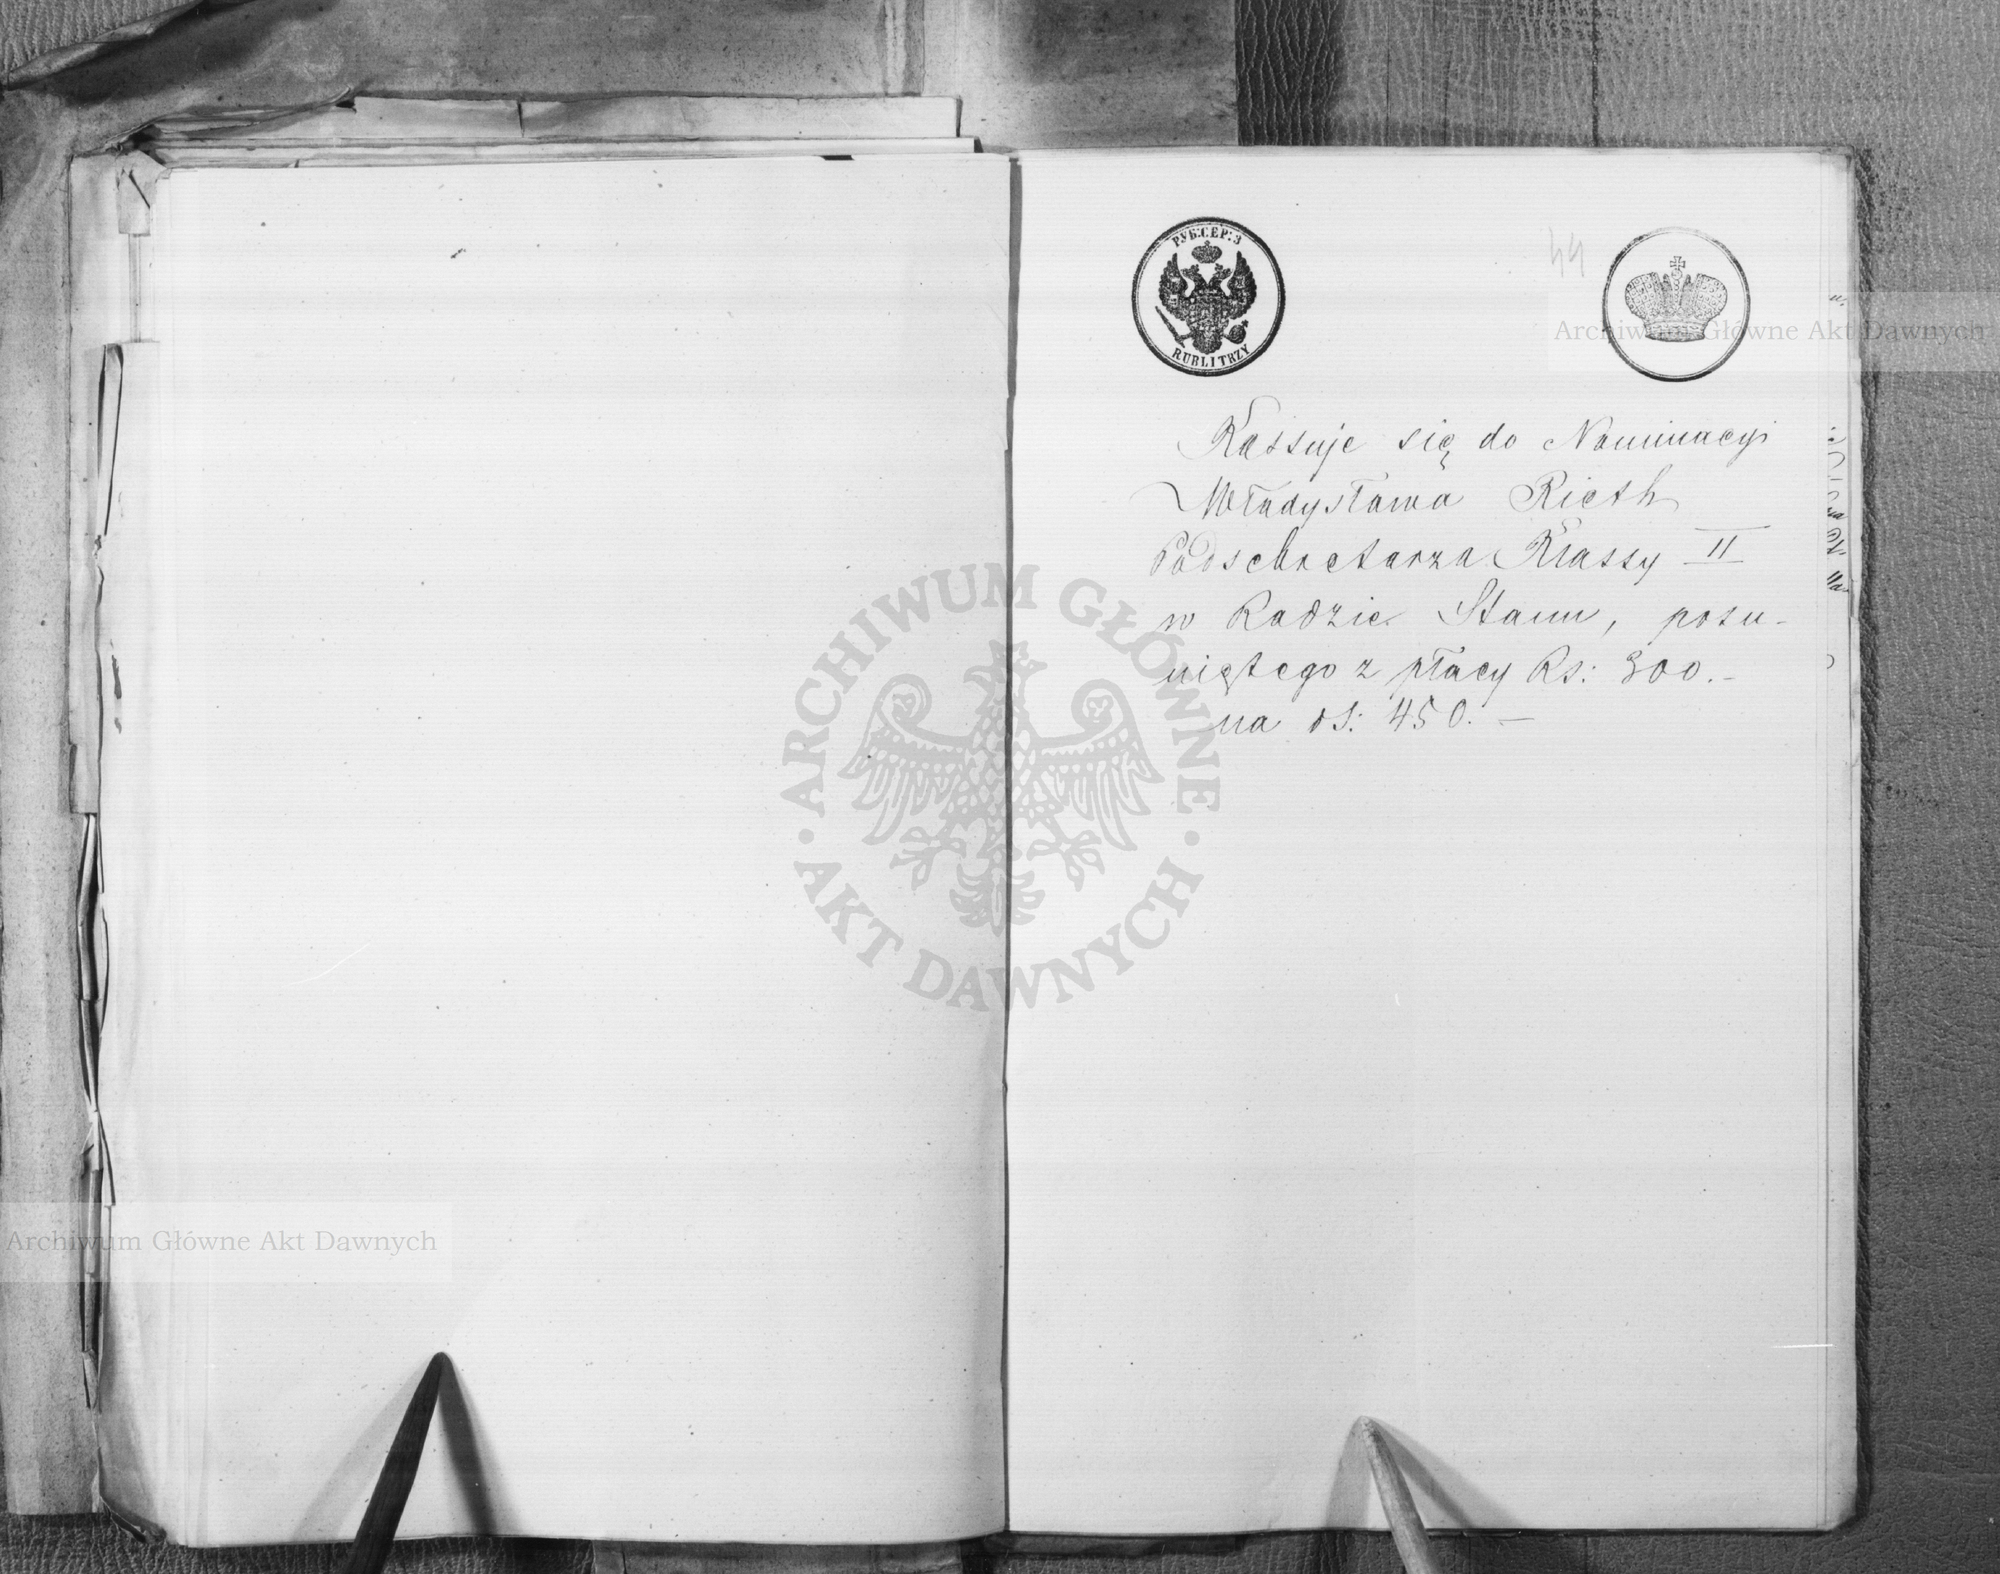 РУБ:СЕР: 3
RUBLI TRZY
44
Kassuje się do Nominacyi
Władysława Rieth
Podsekretarza Klassy II
w Radzie Stanu, posu-
niętego z płacy Rs: 300.-
na rs: 450. —
Archiwum Główne Akt Dawnych
ARCHIWUM GŁÓWNE
· AKT DAWNYCH ·
Archiwum Główne Akt Dawnych